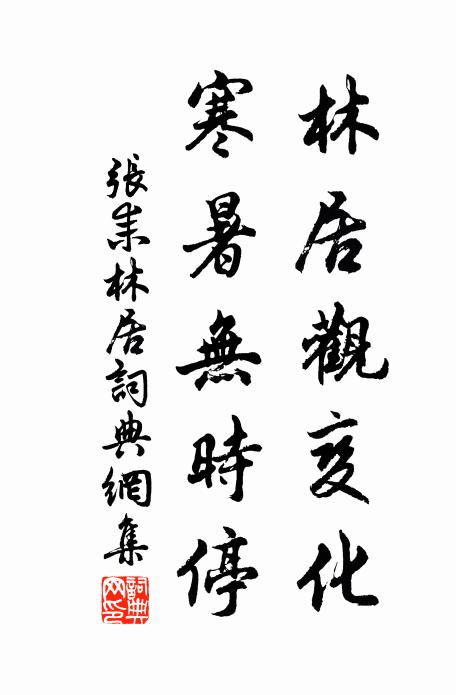 林居觀变化
寒暑無時停
張耒林居詞典網集
詞典網印